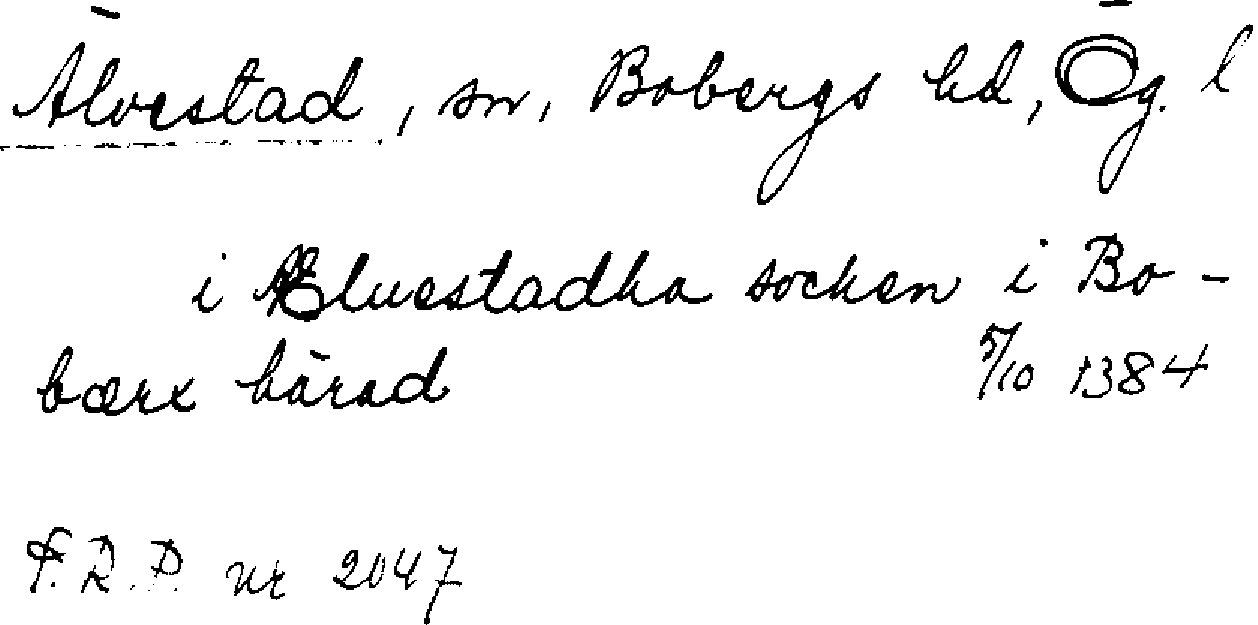 Älvestad, sn, Bobergs hd, Ög. l
i Æluestadha socken i Bo-
bærx härad 5/10 1384
S.R.P. nr 2047